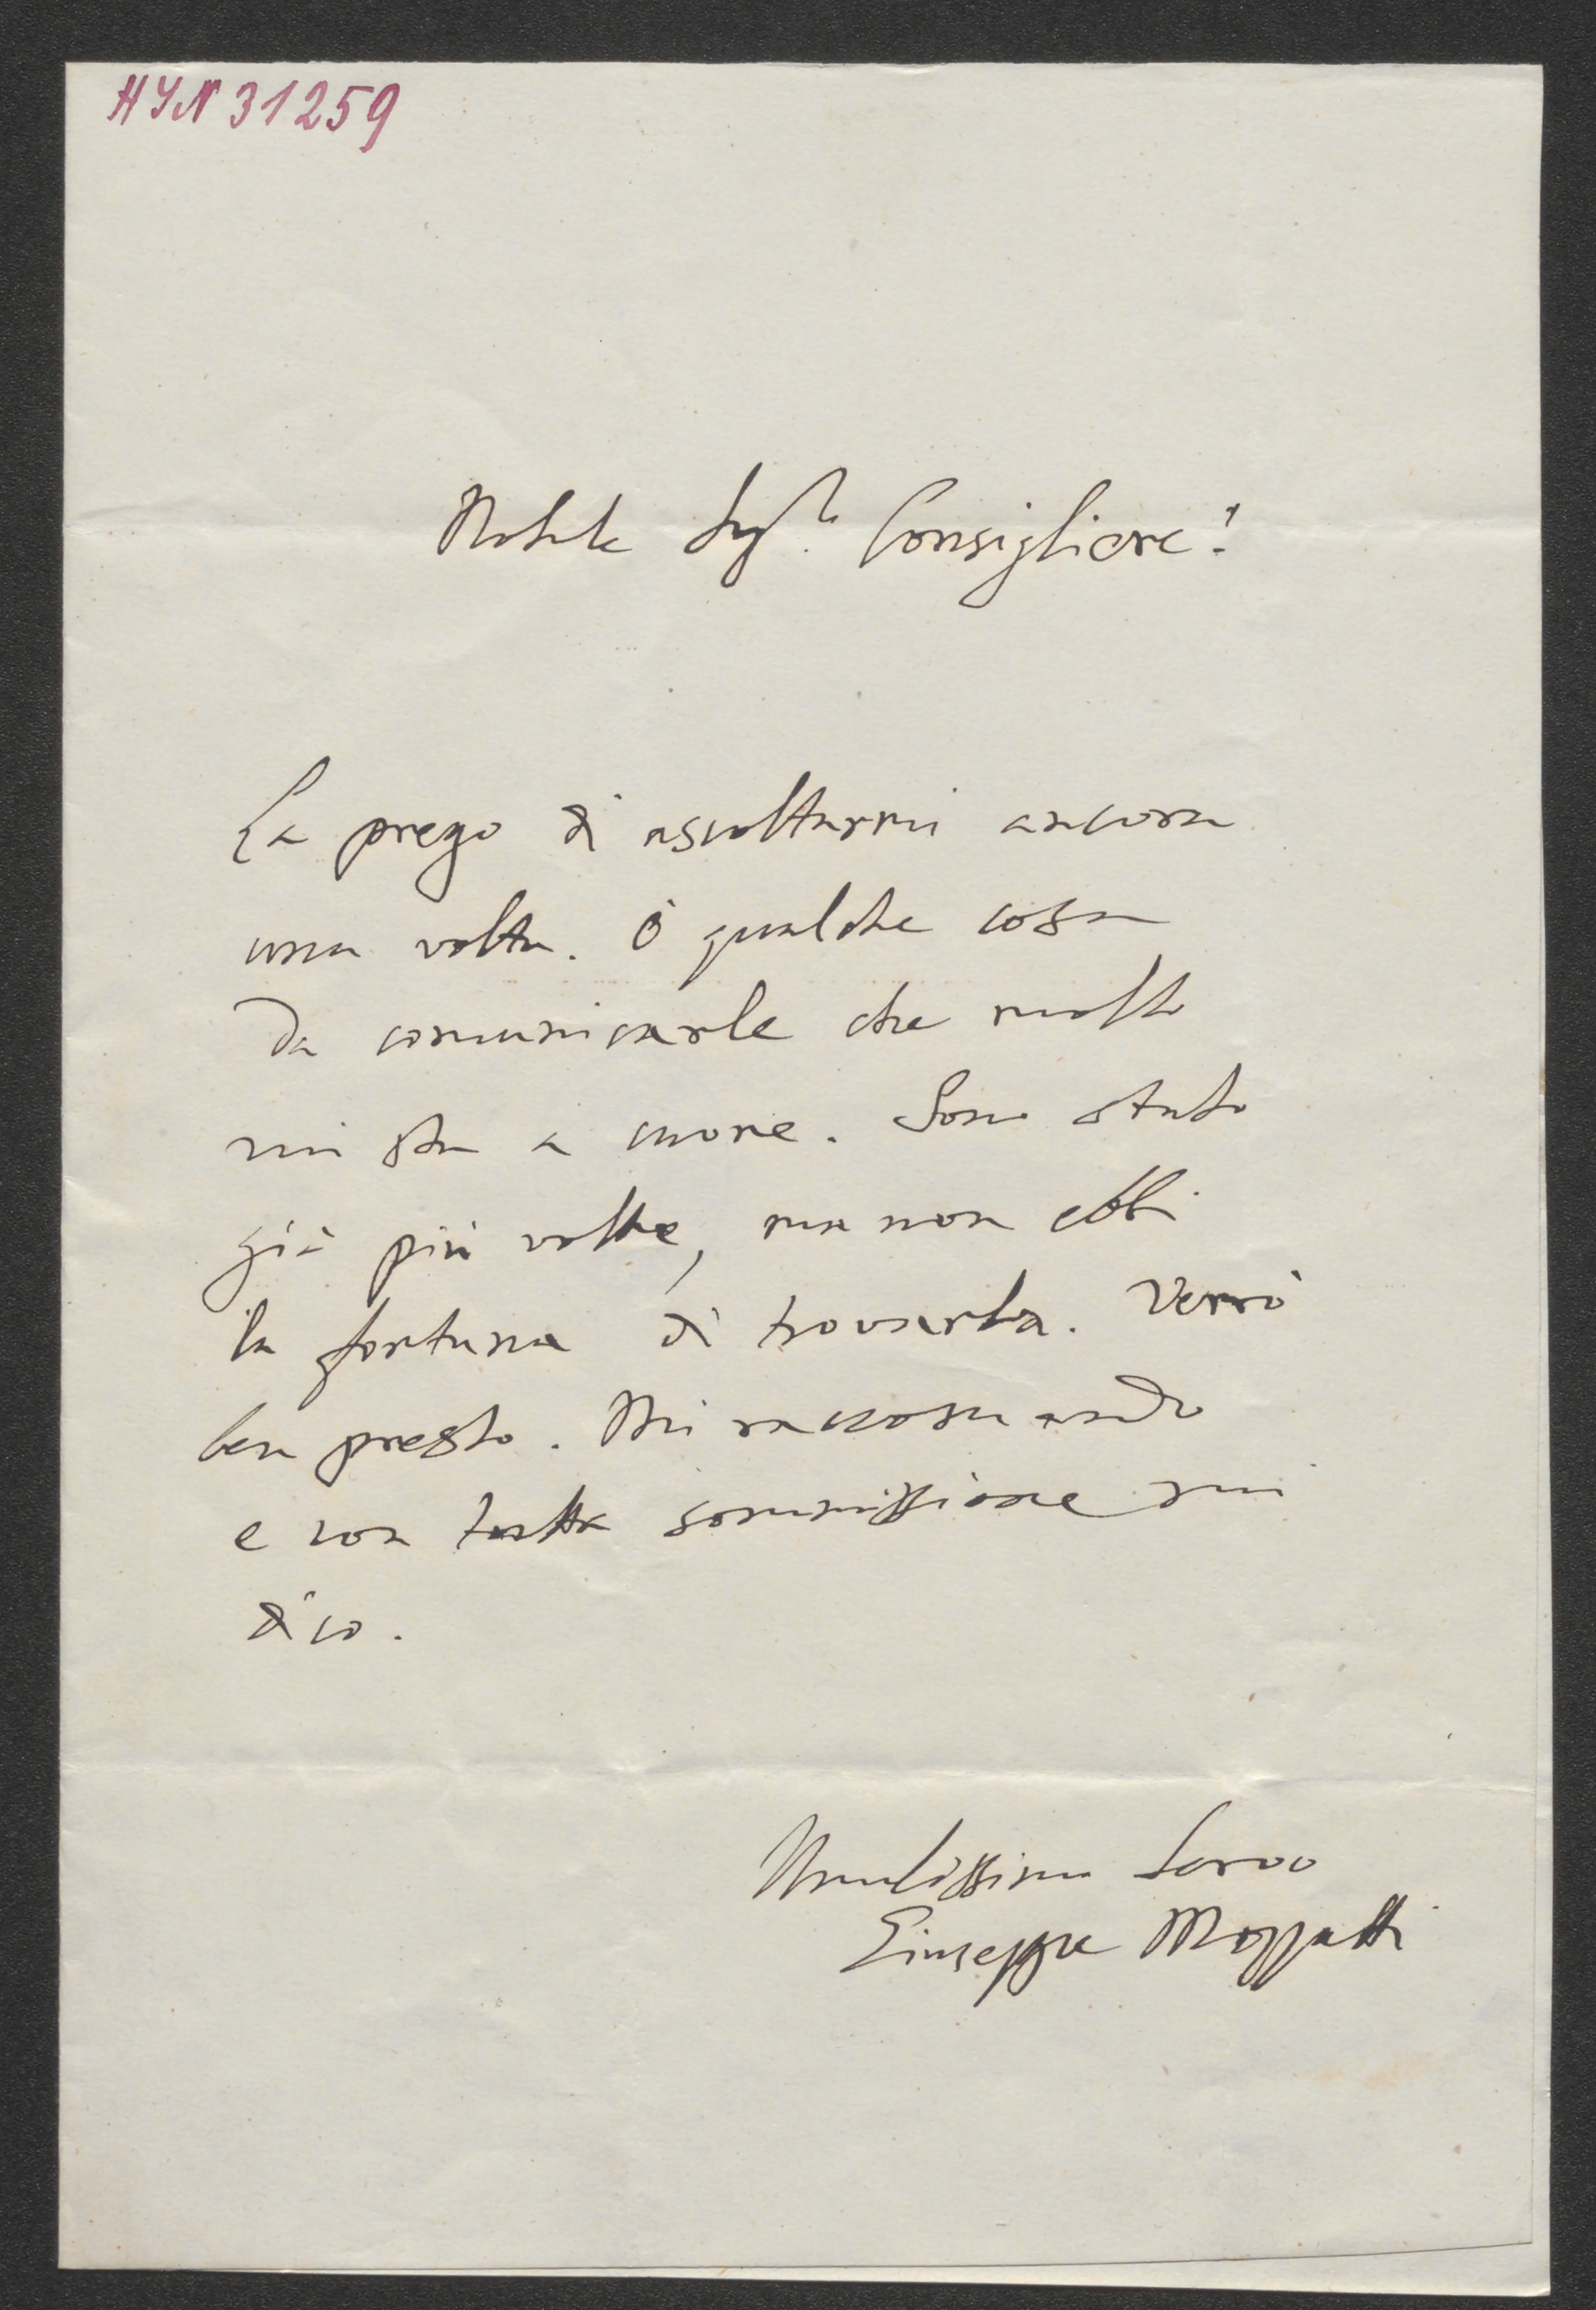 HYN 31259
Nobile Sigr. Consigliere!
La prego di ascoltarmi ancora
una volta. Ò qualche cosa
da comunicarle che molto
mi sta a cuore. Sono stato
già più volte, ma non ebbi
la fortuna di trovarla. Verrò
ben presto. Mi raccomando
e con tutta sommissione mi
dico.
Umilissimo Servo
Giuseppe